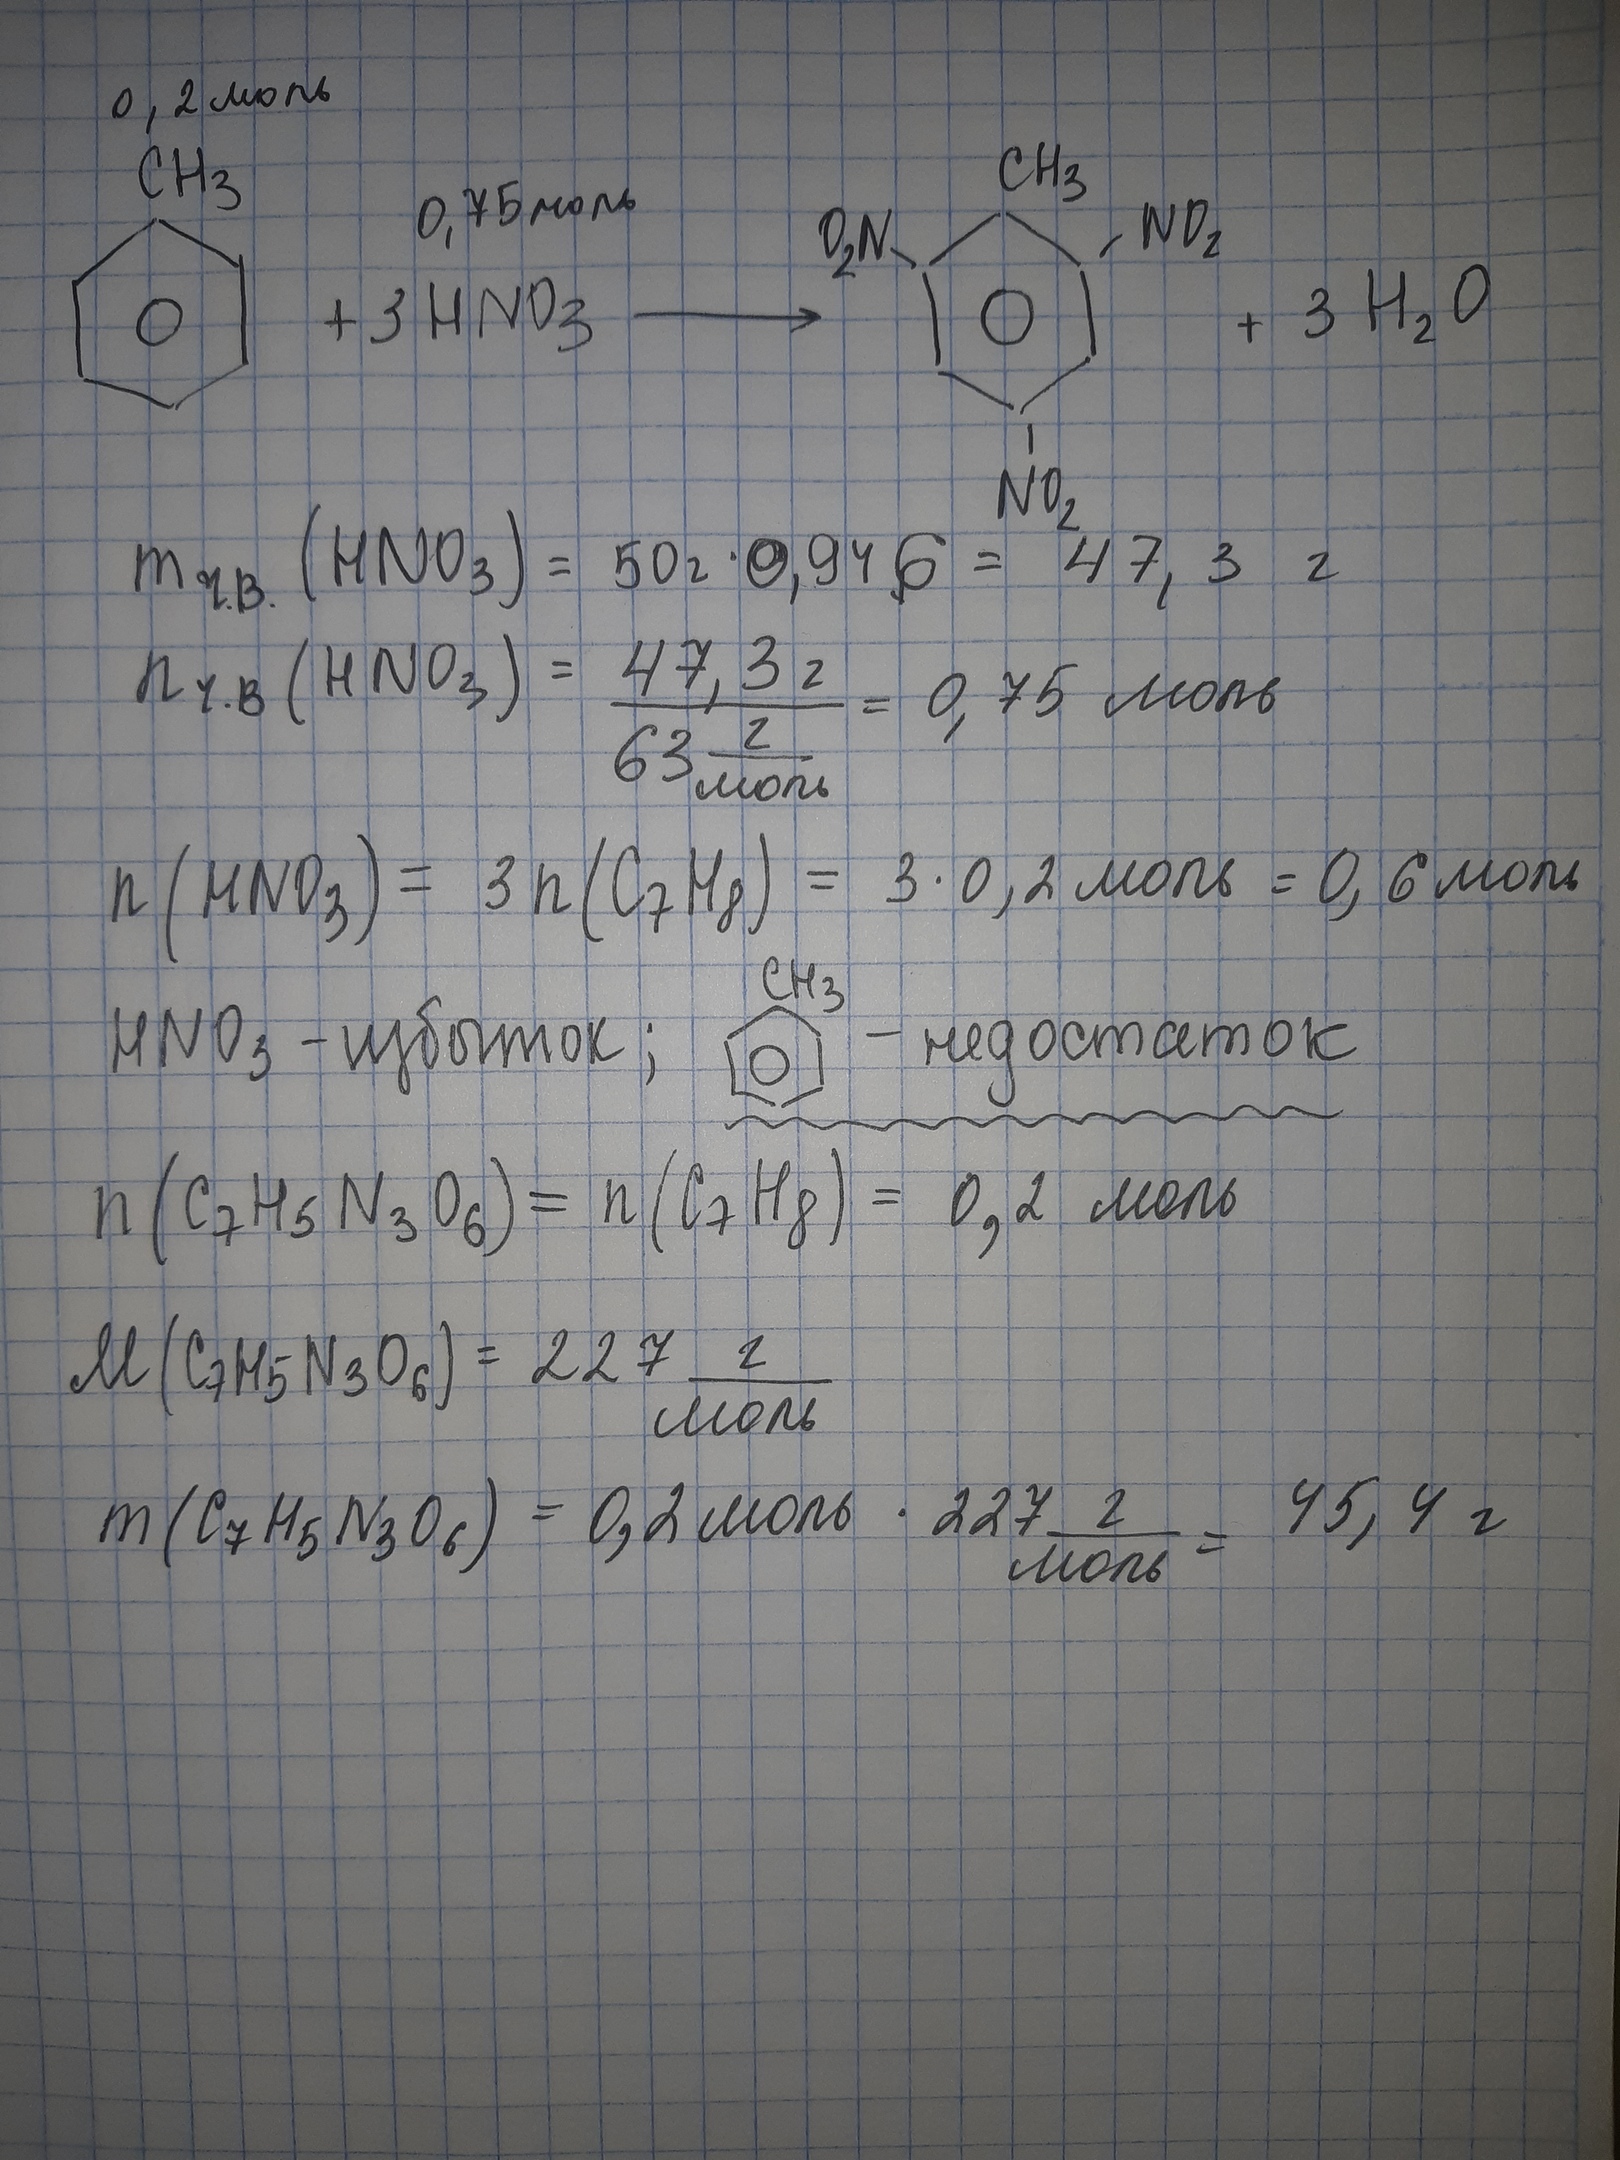 0,2 моль
CH3 CH3
0,75 моль O2N NO2
+ 3 HNO3 ⟶ + 3 H2O
NO2
mч.в. (HNO3) = 50 г · 0,946 = 47,3 г
nч.в (HNO3) = 47,3 г / 63 г/моль = 0,75 моль
n (HNO3) = 3 n (C7H8) = 3 · 0,2 моль = 0,6 моль
CH3
HNO3 – избыток; – недостаток
n (C7H5N3O6) = n (C7H8) = 0,2 моль
M (C7H5N3O6) = 227 г/моль
m (C7H5N3O6) = 0,2 моль · 227 г/моль = 45,4 г